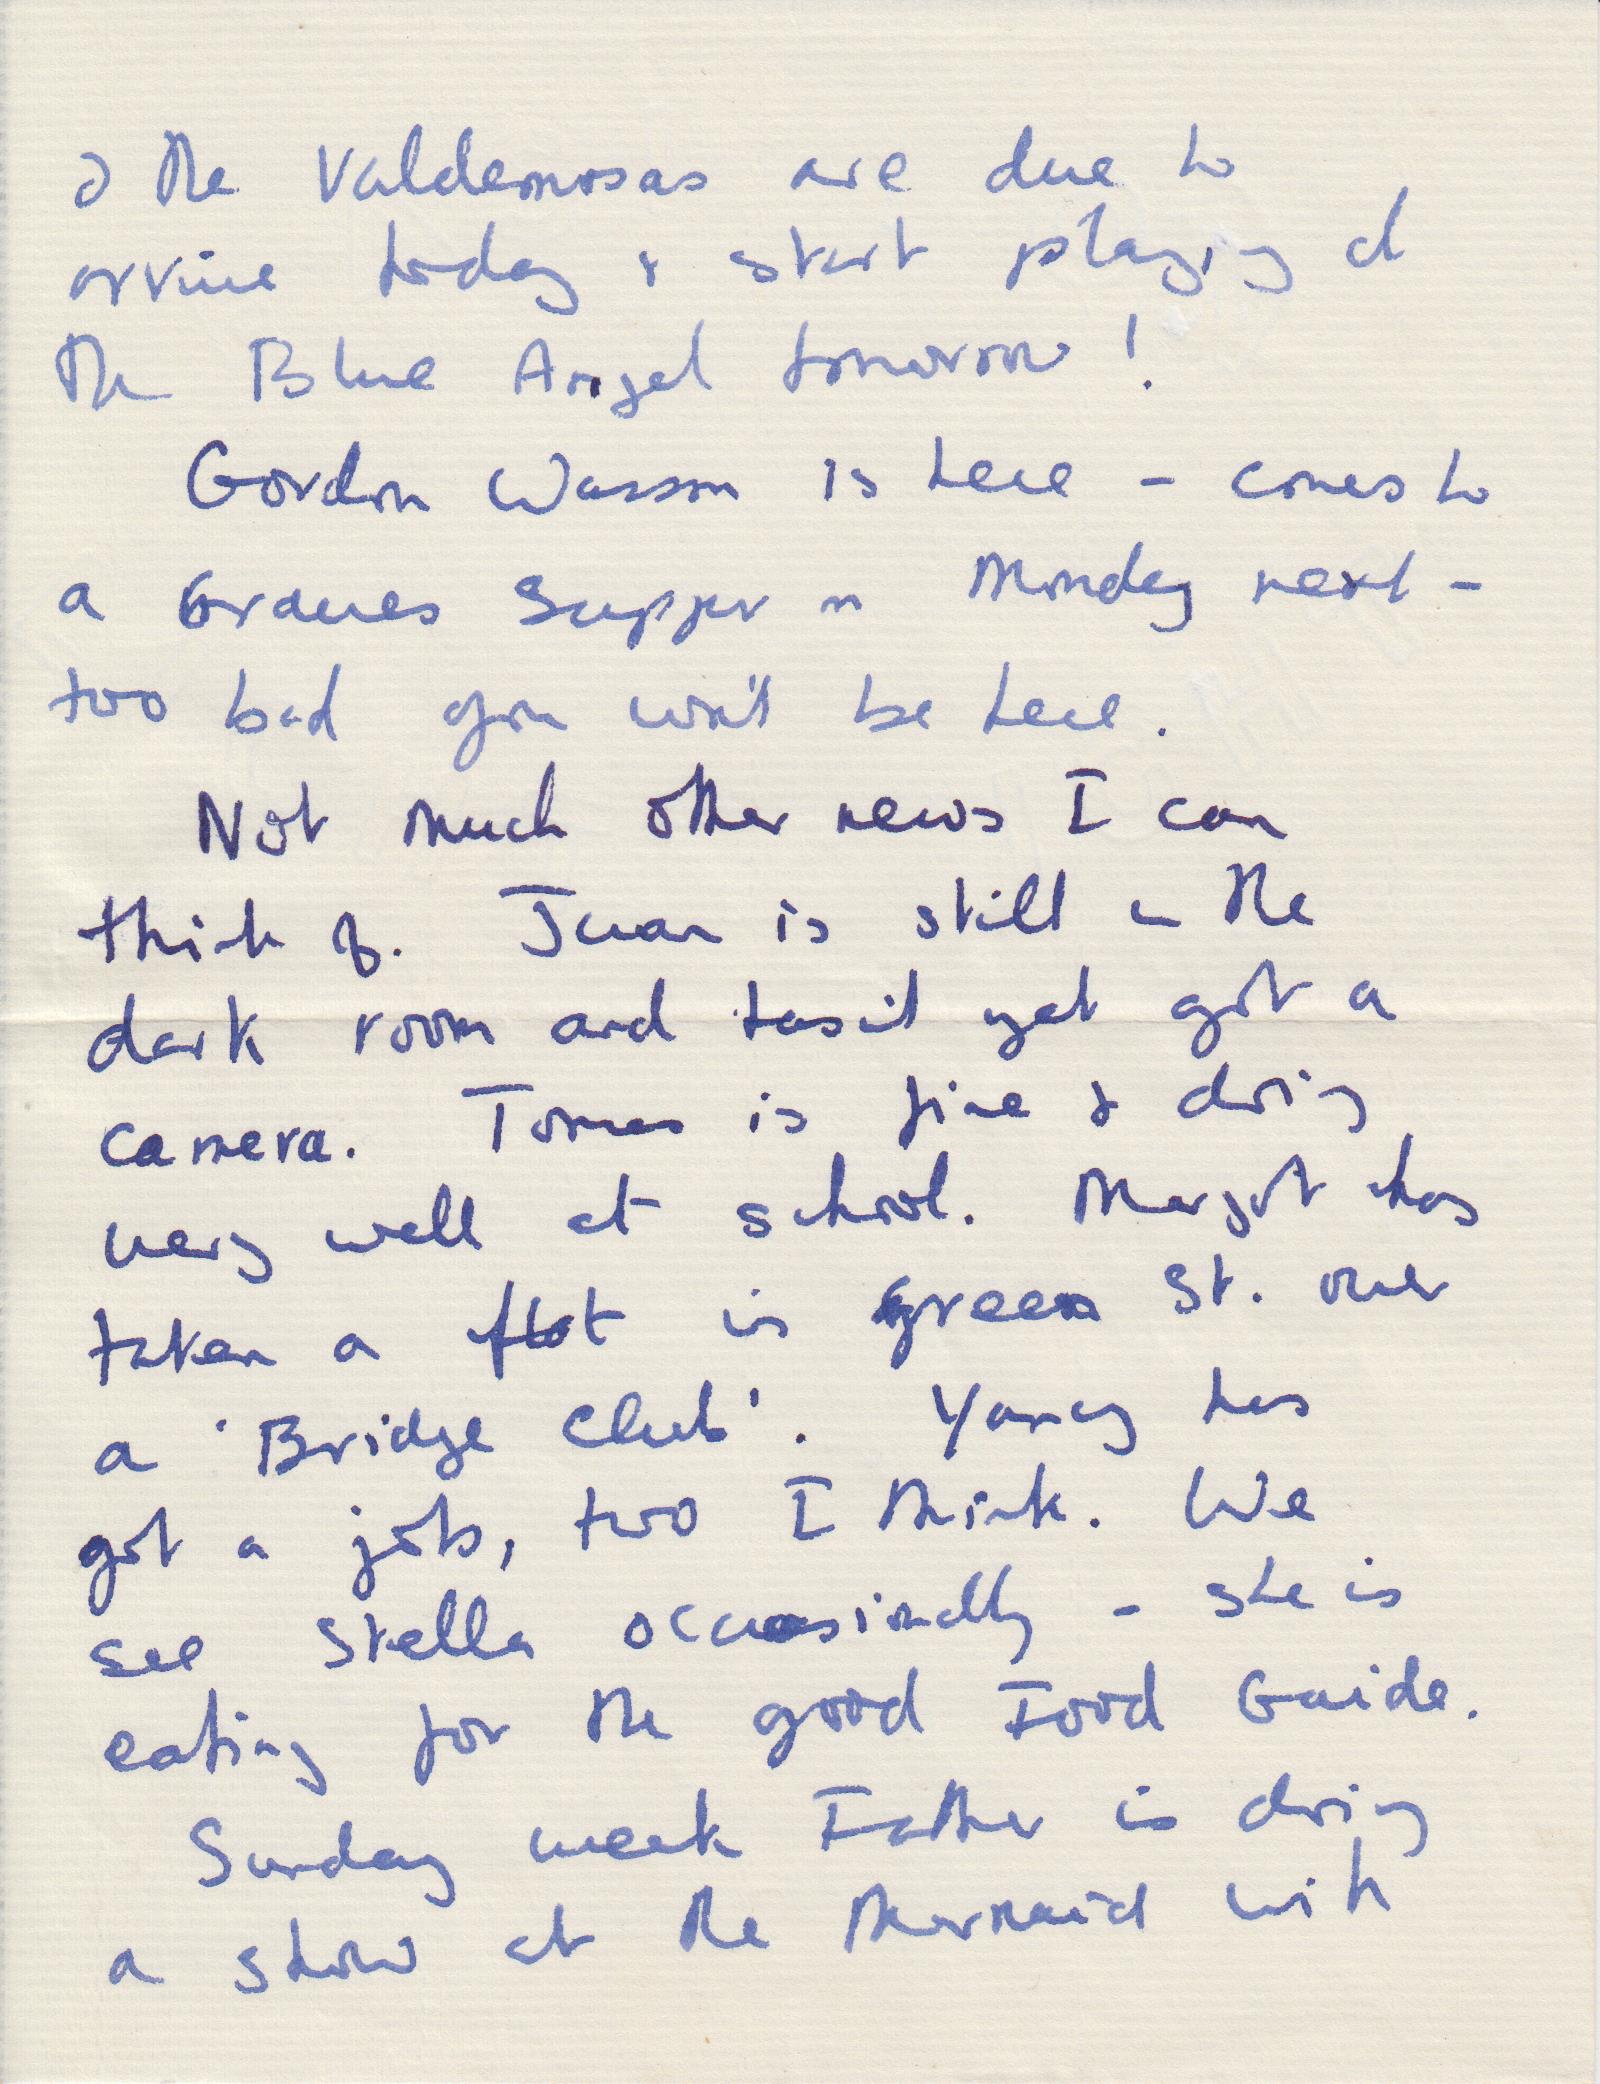 & the Valdemosas are due to
arrive today & start playing at
the Blue Angel tomorrow!
Gordon Wasson is here - comes to
a Graves Supper on Monday next -
too bad you won't be here.
Not much other news I can
think of. Juan is still in the
dark room and hasn't yet got a
camera. Tomas is fine & doing
very well at school. Margot has
taken a flat in Green St. over
a 'Bridge Club'. Yancy has
got a job, two I think. We
see Stella occasionally - she is
eating for the good Food Guide.
Sunday week Father is doing
a show at the Mermaid with